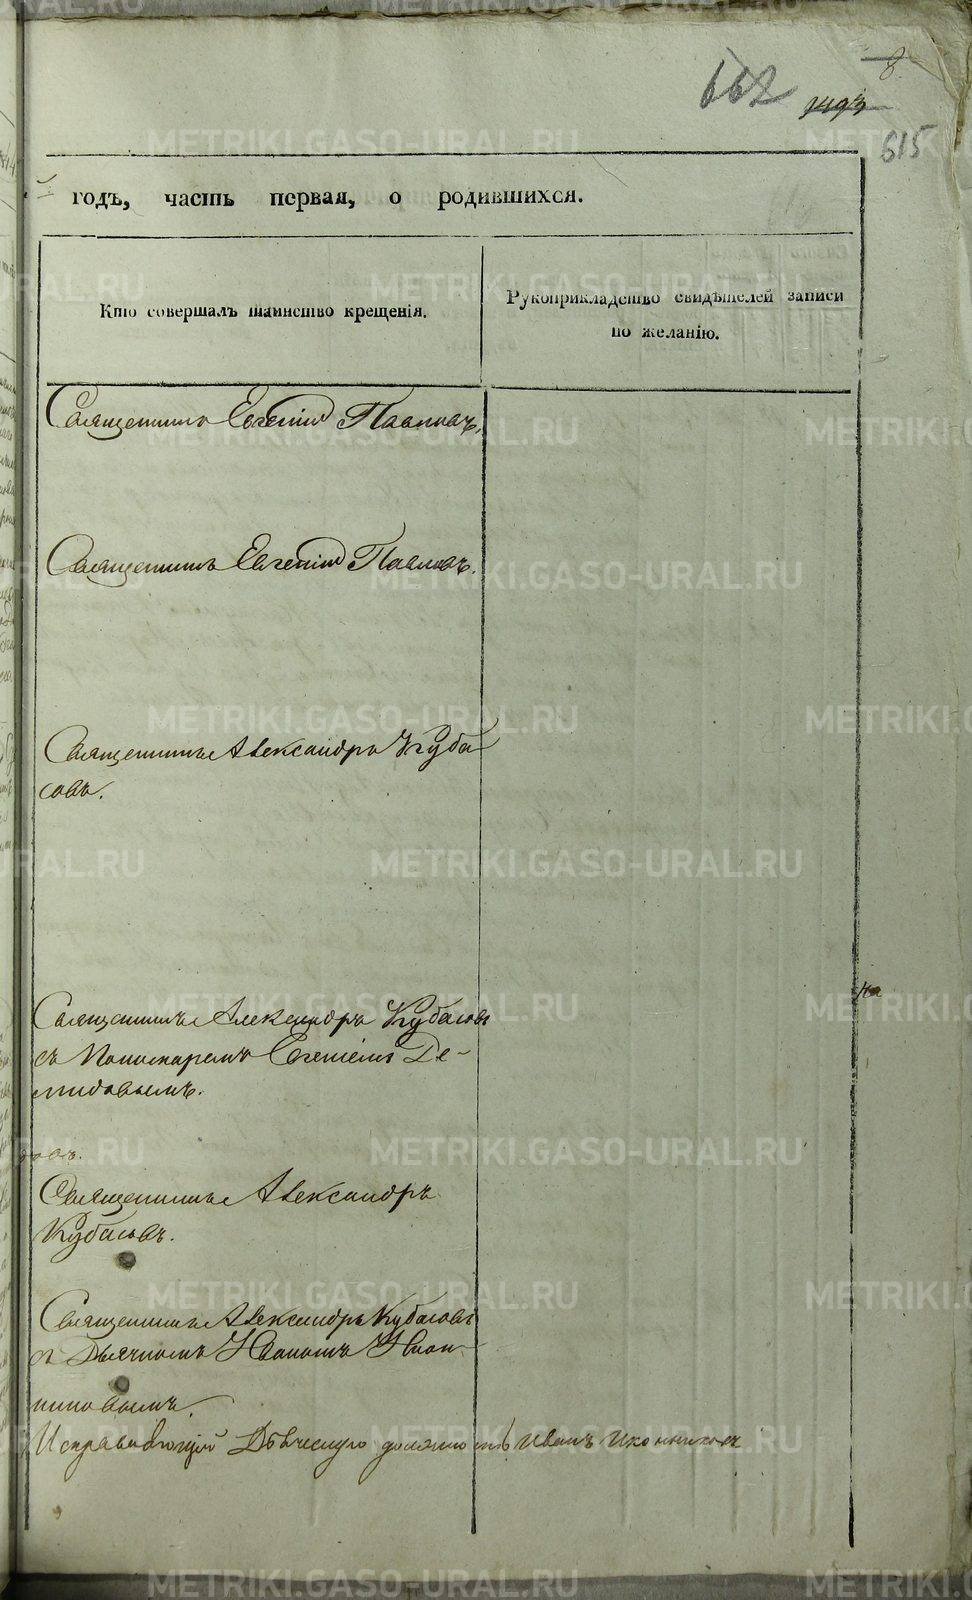 8
662
1493
615
годъ, часть первая, о родившихся.
Кто совершалъ таинство крещенія.
Рукоприкладство свидѣтелей записи
по желанію.
Священникъ Евгеній Павловъ.
Священникъ Евгеній Павловъ.
Священникъ Александръ Куба
совъ.
Священникъ Александръ Кубасовъ
съ Пономаремъ Евгеніемъ Де-
мидовымъ.
Священникъ Александръ
Кубасовъ.
Священникъ Александръ Кубасовъ
съ Дьячкомъ Иваномъ Икон-
никовымъ.
Исправляющій Дьяческую должность Иванъ Иконниковъ
METRIKI.GASO-URAL.RU